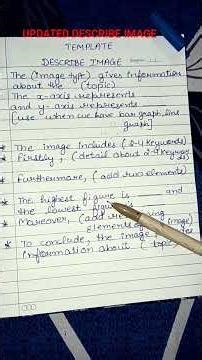 UPDATED DESCRIBE IMAGE
TEMPLATE
DESCRIBE IMAGE
The (image type) gives information
about the (topic)
The x-axis represents
and y-axis represents
[use when we have bar graph, line
graph]
* The image includes (2-4 keywords)
* Firstly, (detail about 2-4 keywords
* Furthermore, (add two elements)
* The highest figure is and
the lowest figure is
* Moreover, (add
elements image)
* To conclude, the image
information about (topic)